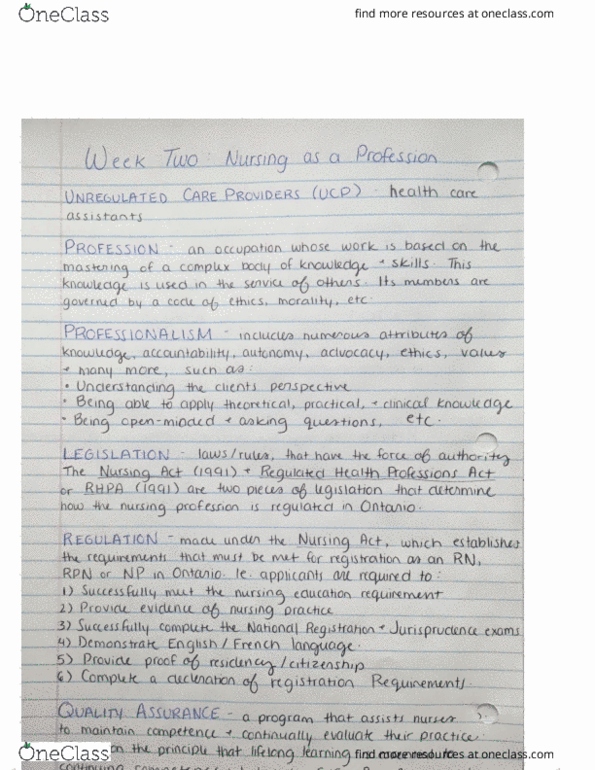 OneClass
find more resources at oneclass.com
Week Two: Nursing as a Profession
UNREGULATED CARE PROVIDERS (UCP) - health care
assistants
PROFESSION - an occupation whose work is based on the
mastering of a complex body of knowledge + skills. This
knowledge is used in the service of others. Its members are
governed by a code of ethics, morality, etc.
PROFESSIONALISM - includes numerous attributes of
knowledge, accountability, autonomy, advocacy, ethics, values
+ many more, such as:
• Understanding the clients perspective
• Being able to apply theoretical, practical, + clinical knowledge
• Being open-minded + asking questions, etc.
LEGISLATION - laws/rules, that have the force of authority
The Nursing Act (1991) + Regulated Health Professions Act
or RHPA (1991) are two pieces of legislation that determine
how the nursing profession is regulated in Ontario.
REGULATION - made under the Nursing Act, which establishes
the requirements that must be met for registration as an RN,
RPN or NP in Ontario. Ie. applicants are required to:
1) Successfully meet the nursing education requirement
2) Provide evidence of nursing practice
3) Successfully complete the National Registration + Jurisprudence exams
4) Demonstrate English/French language.
5) Provide proof of residency/citizenship
6) Complete a declaration of registration Requirements.
QUALITY ASSURANCE - a program that assists nurses
to maintain competence + continually evaluate their practice.
on the principle that lifelong learning
OneClass
find more resources at oneclass.com